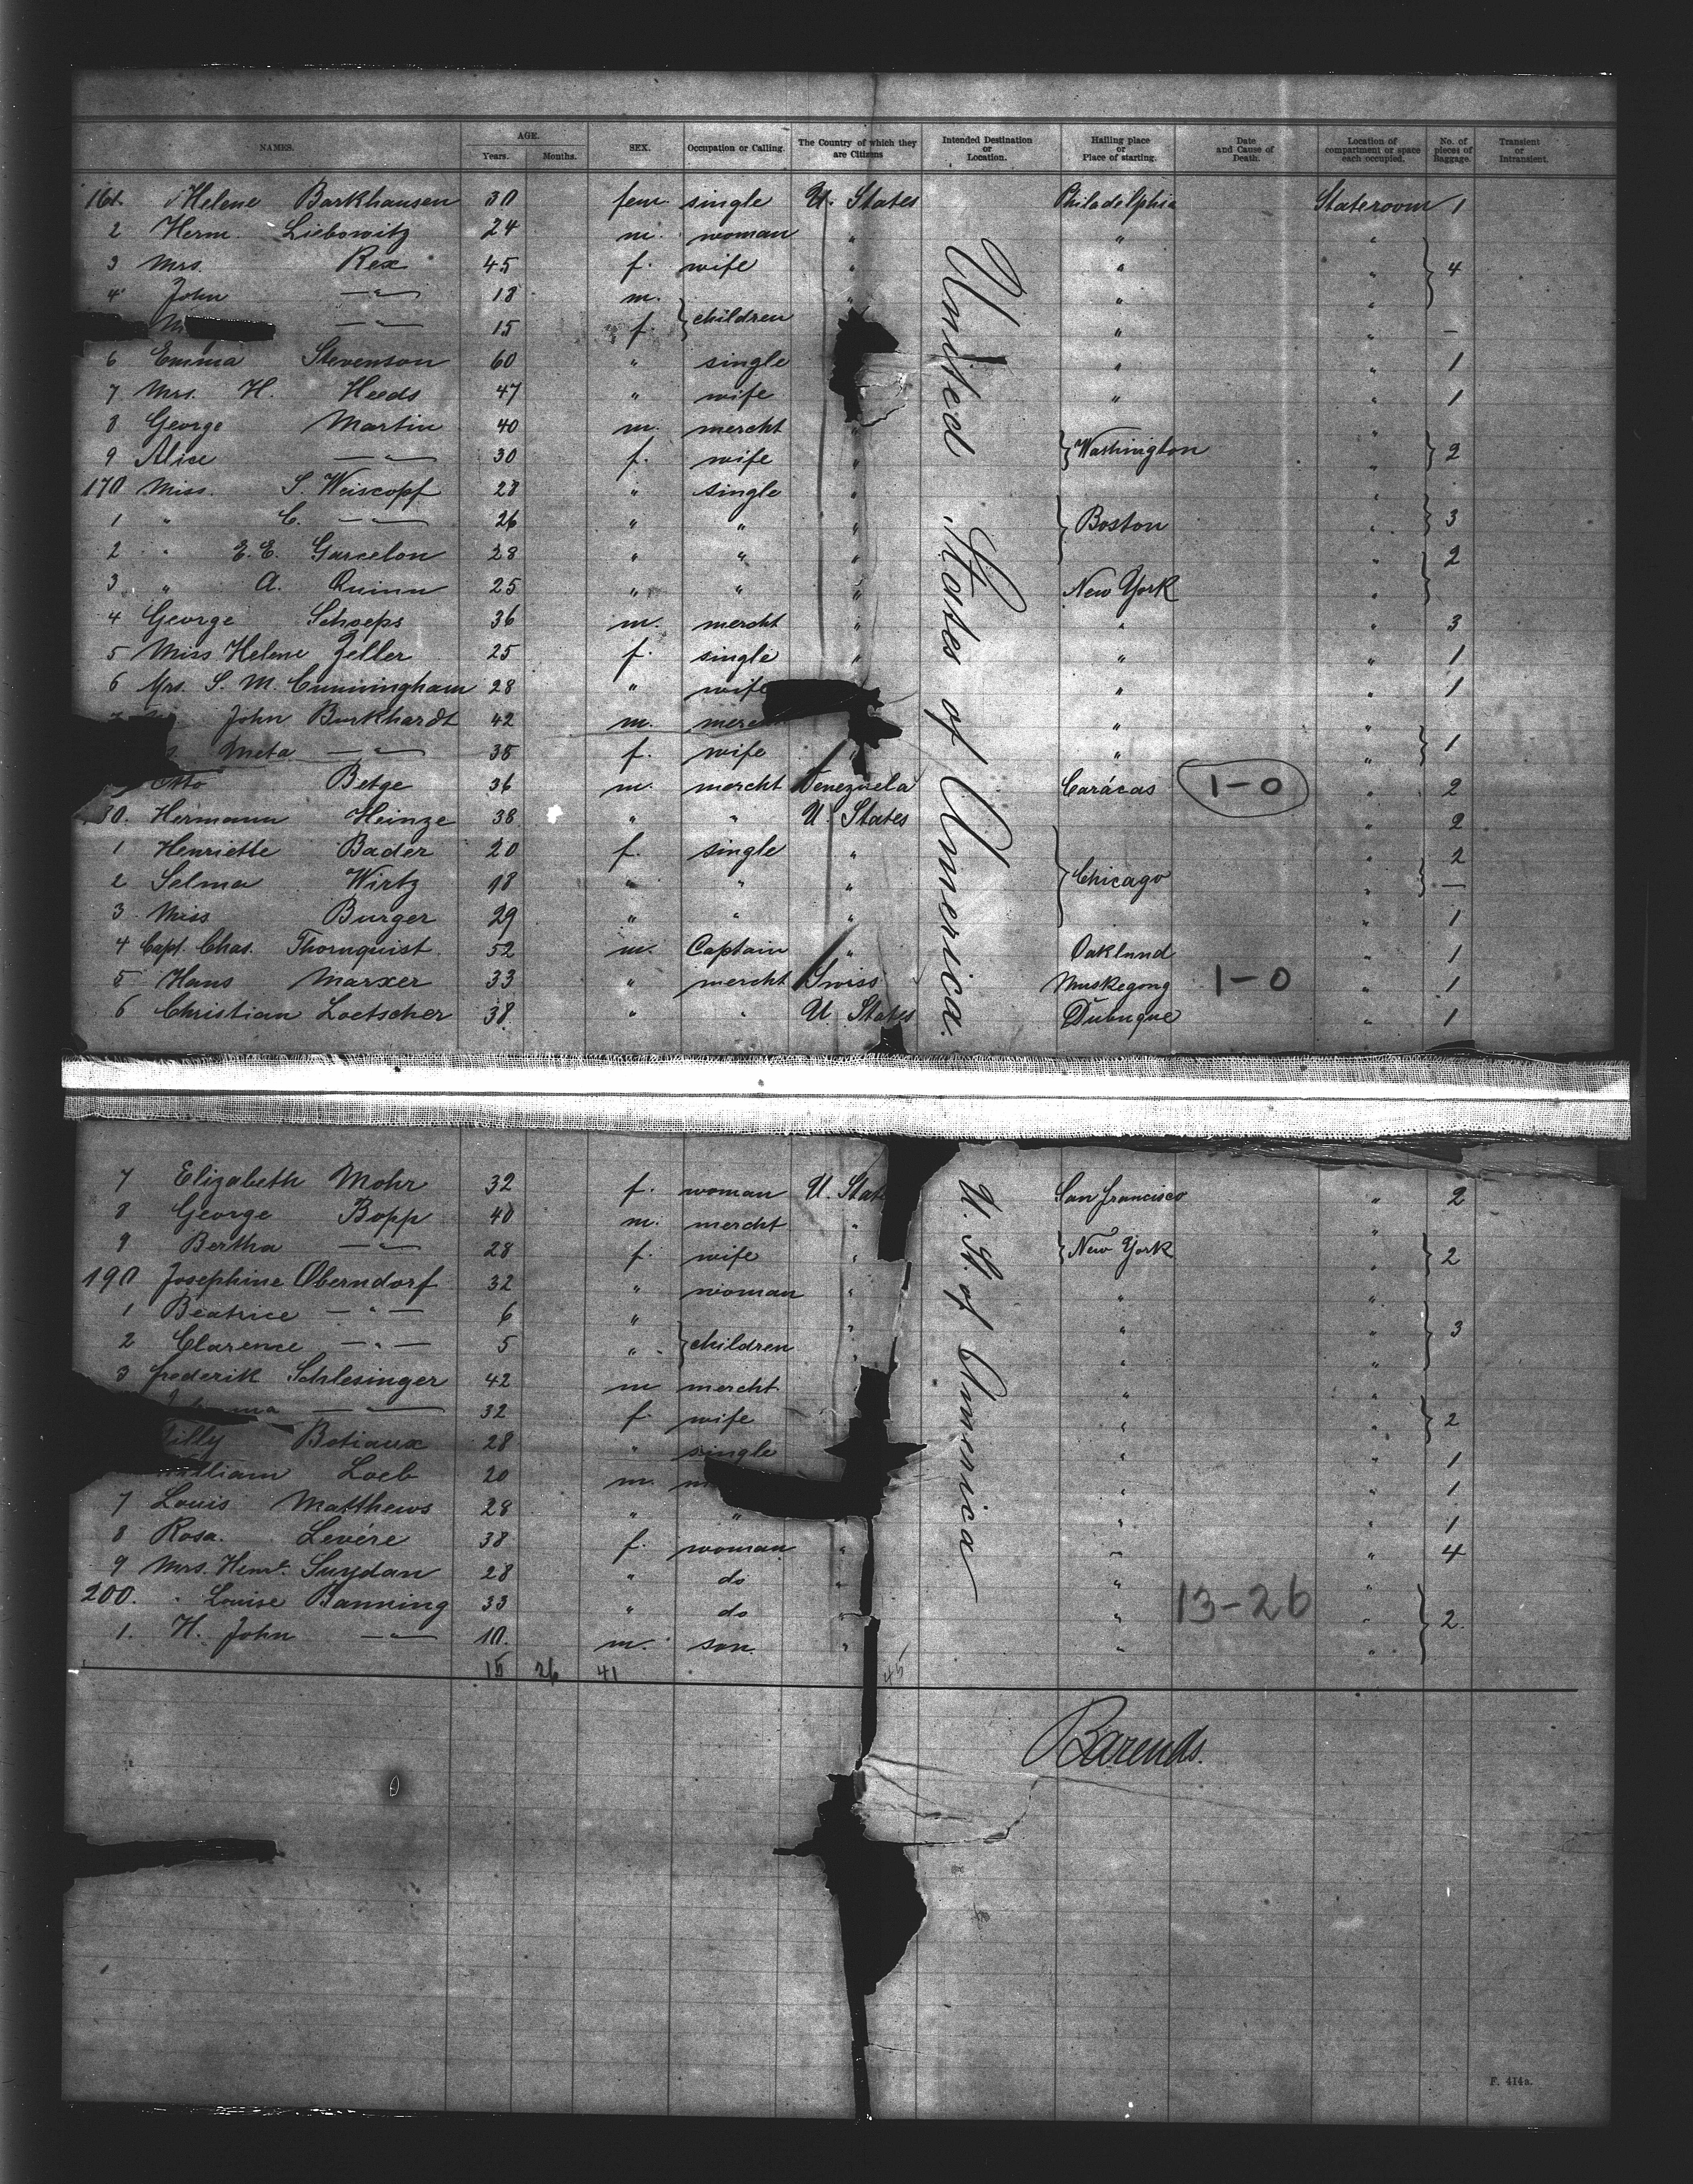 NAMES. AGE. Years. Months. SEX. Occupation or Calling. The Country of which they are Citizens Intended Destination or Location. Hailing place or Place of starting. Date and Cause of Death. Location of compartment or space each occupied. No. of pieces of Baggage. Transient or Intransient.
161. Helene Barkhausen 30 fem. single U. States Philadelphia Stateroom 1
2 Herm. Liebowitz 24 m. woman " " "
3 Mrs. Rex 45 f. wife " " " 4
4 John —"— 18 m. " " "
—"— 15 f. children " " —
6 Emma Stevenson 60 " single " " 1
7 Mrs. H. Heeds 47 " wife " " 1
8 George Martin 40 m. mercht " "
9 Alice —"— 30 f. wife " Washington " 2
170 Miss. S. Weiscopf 28 " single " "
1 " C. —"— 26 " " " Boston " 3
2 " E. E. Garcelon 28 " " " " 2
3 " A. Quinn 25 " " " New York "
4 George Schoeps 36 m. mercht " " " 3
5 Miss Helene Zeller 25 f. single " " " 1
6 Mrs. S. M. Cunningham 28 " wife " " 1
John Burkhardt 42 m. " "
Meta —"— 38 f. wife " " " 1
Otto Betge 36 m. mercht Venezuela Carácas 1-0 " 2
80. Hermann Heinze 38 " " U. States " 2
1 Henriette Bader 20 f. single " " 2
2 Selma Wirtz 18 " " " Chicago " —
3 Miss Burger 29 " " " " 1
4 Capt. Chas. Thornquist. 52 m. Captain " Oakland " 1
5 Hans Marxer 33 " mercht Swiss Muskegong 1-0 " 1
6 Christian Loetscher 38 " " U. States Dubuque " 1
United States of America.
7 Elizabeth Mohr 32 f. woman U. State San Francisco " 2
8 George Bopp 40 m. mercht " "
9 Bertha —"— 28 f. wife " New York " 2
190 Josephine Oberndorf 32 " woman " " "
1 Beatrice —"— 6 " " " " 3
2 Clarence —"— 5 " children " " "
3 Frederik Schlesinger 42 m mercht " "
—"— 32 f. wife " " 2
Betiaux 28 " single " " 1
William Loeb 20 m. " " 1
7 Louis Matthews 28 " " " " 1
8 Rosa. Levére 38 f. woman " " " 4
9 Mrs. Henrt. Suydan 28 " do " " "
200. " Louise Banning 33 " do " " 13-26 " 2.
1. H. John —"— 10. m. son. " " "
15 26 41 45
U. St. of America
Barends.
F. 414a.